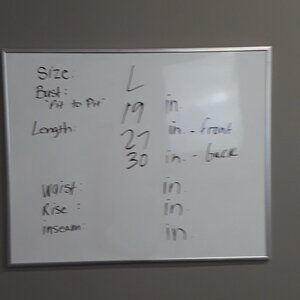 Size: L
Bust:
"Pit to Pit" 19 in.
Length: 27 in. - front
30 in. - back
Waist: in.
Rise: in.
inseam: in.